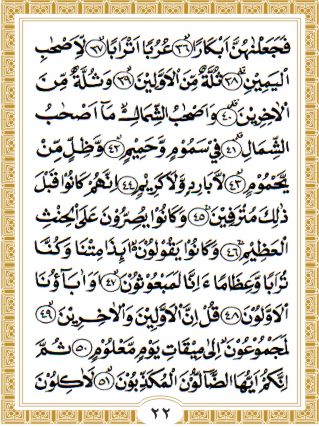 فَجَعَلْنٰهُنَّ اَبْكَارًا ﴿٣٦﴾ عُرُبًا اَتْرَابًا ﴿٣٧﴾ لِّاَصْحٰبِ
الْيَمِيْنِ ﴿٣٨﴾ ثُلَّةٌ مِّنَ الْاَوَّلِيْنَ ﴿٣٩﴾ وَثُلَّةٌ مِّنَ
الْاٰخِرِيْنَ ﴿٤٠﴾ وَاَصْحٰبُ الشِّمَالِ مَاۤ اَصْحٰبُ
الشِّمَالِ ﴿٤١﴾ فِيْ سَمُوْمٍ وَّحَمِيْمٍ ﴿٤٢﴾ وَّظِلٍّ مِّنْ
يَّحْمُوْمٍ ﴿٤٣﴾ لَّا بَارِدٍ وَّلَا كَرِيْمٍ ﴿٤٤﴾ اِنَّهُمْ كَانُوْا قَبْلَ
ذٰلِكَ مُتْرَفِيْنَ ﴿٤٥﴾ وَكَانُوْا يُصِرُّوْنَ عَلَى الْحِنْثِ
الْعَظِيْمِ ﴿٤٦﴾ وَكَانُوْا يَقُوْلُوْنَ اَىِٕذَا مِتْنَا وَكُنَّا
تُرَابًا وَّعِظَامًا ءَاِنَّا لَمَبْعُوْثُوْنَ ﴿٤٧﴾ اَوَاٰبَآؤُنَا
الْاَوَّلُوْنَ ﴿٤٨﴾ قُلْ اِنَّ الْاَوَّلِيْنَ وَالْاٰخِرِيْنَ ﴿٤٩﴾
لَمَجْمُوْعُوْنَ اِلٰى مِيْقَاتِ يَوْمٍ مَّعْلُوْمٍ ﴿٥٠﴾ ثُمَّ
اِنَّكُمْ اَيُّهَا الضَّآلُّوْنَ الْمُكَذِّبُوْنَ ﴿٥١﴾ لَاٰكِلُوْنَ
٢٢